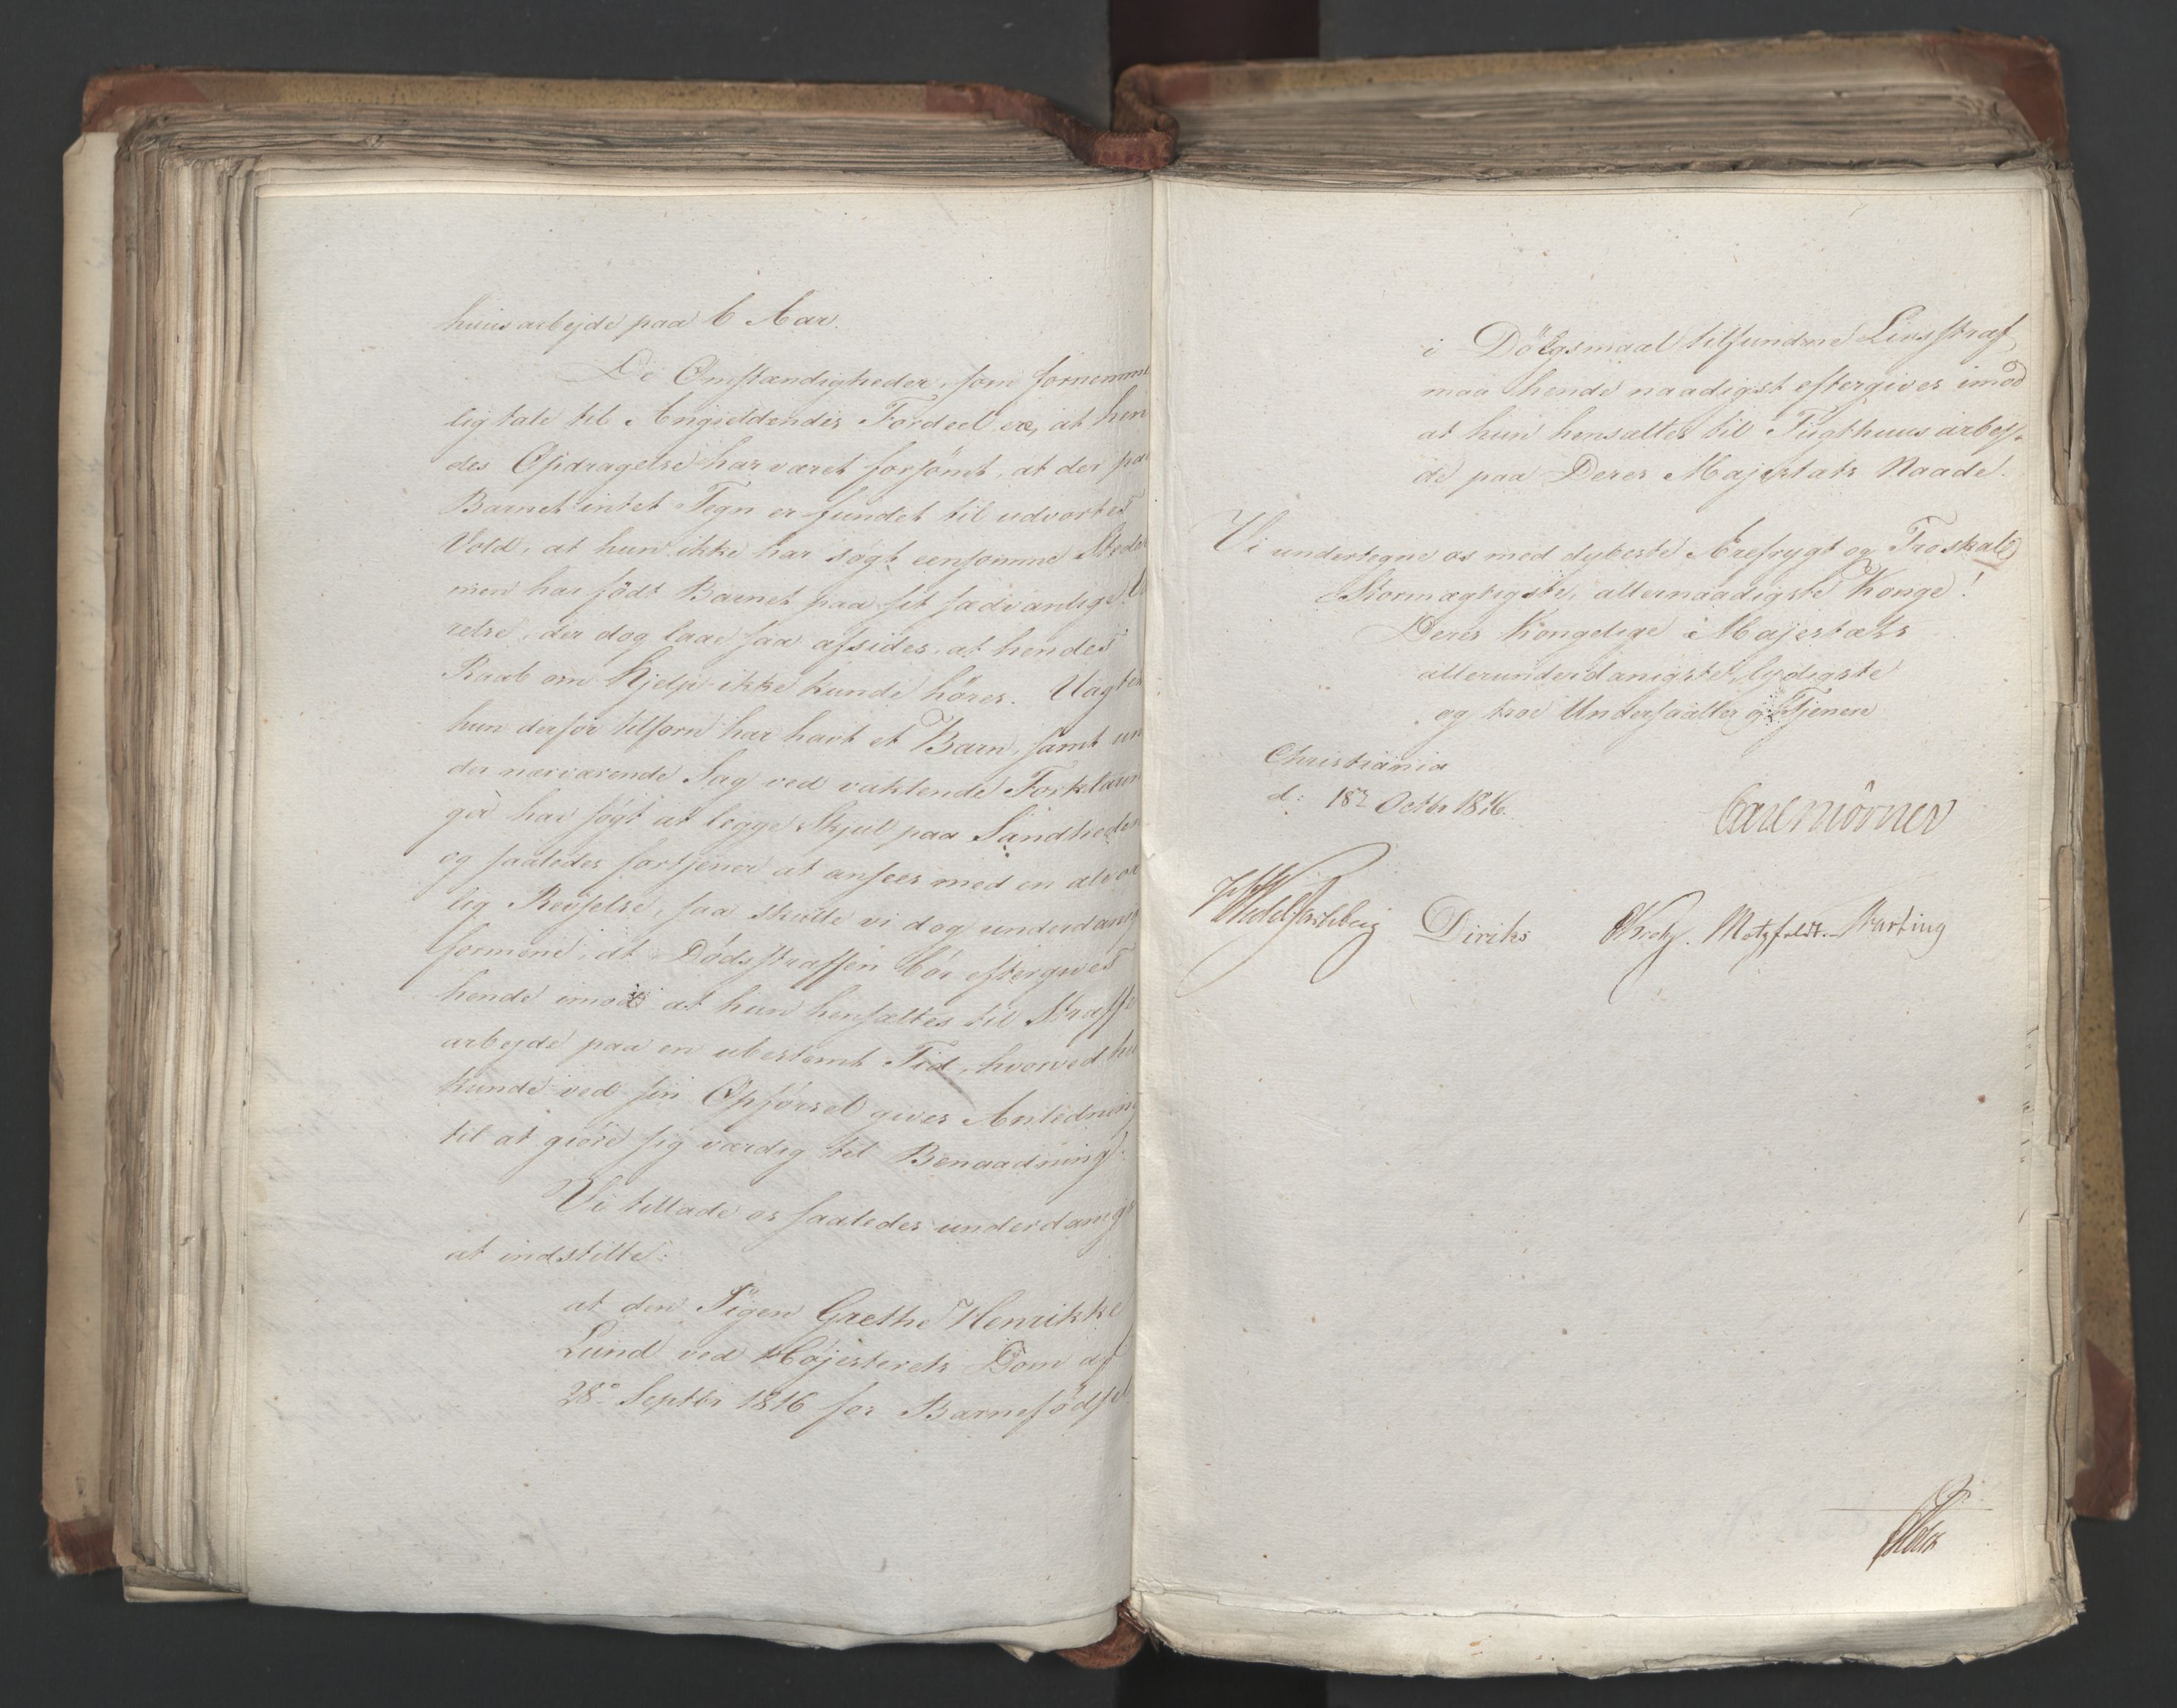 huusarbejde paa 6 Aar.
De Omstændigheder, som fornemme
lig tale til Angieldendes Fordeel er, at hen
des Opdragelse har været forsömt, at der paa
Barnet intet Tegn er fundet til udvortes
Vold, at hun ikke har sögt eensomme Steder
men har födt Barnet paa sit sædvanlige
relse, der dog laae saa afsides, at hendes
Raab om Hjelp ikke kunde höres. Uagtet
hun derfor tilforn har havt et Barn, samt un
der nærværende Sag ved vaklende Forklarin
ger har sögt at legge Skjul paa Sandheden
og saaledes fortjener at ansees med en alvor
lig Revselse, saa skulle vi dog underdanigst
formene, at Dödsstraffen bör eftergives
hende imod at hun hensættes til Straffe
arbejde paa en ubestemt Tid, hvorved hun
kunde ved sin Opförsel gives Anledning
til at giöre sig værdig til Benaadning.
Vi tillade os saaledes underdanigst
at indstille:
at den Pigen Grethe Henrikke
Lund ved Höjesterets Dom af
28de Septbr 1816 for Barnefödsel
i Dölgsmaal tilfundne Livsstraf,
maa hende naadigst eftergives imod
at hun hensættes til Tugthuusarbej-
de paa Deres Majestæts Naade.
Vi undertegne os med dybeste Ærefrygt og Troskab
Stormægtigste, allernaadigste Konge!
Deres Kongelige Majestæts
allerunderdanigste, lydigste
og troe Undersaatter og Tjenere
Christiania
d: 18de Octbr 1816.
Carl Mörner
HWedelJarlsberg Diriks Krebs. Motzfeldt. Harting